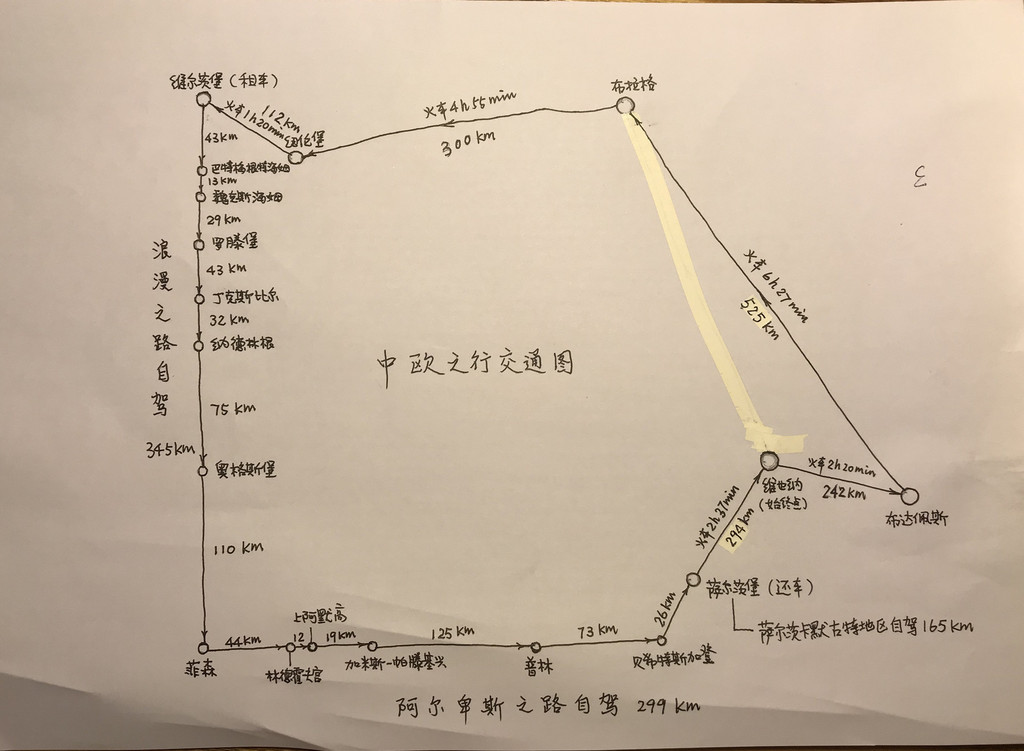 维尔茨堡（租车）
火车1h20min
112km
纽伦堡
火车4h55min
300km
布拉格
43km
巴特梅根特海姆
13km
魏克斯海姆
29km
罗滕堡
43km
丁克斯比尔
32km
纳德林根
75km
345km
奥格斯堡
110km
浪漫之路自驾
中欧之行交通图
火车6h27min
525km
火车2h20min
242km
维也纳
（始终点）
布达佩斯
火车2h37min
294km
萨尔茨堡（还车）
萨尔茨卡默古特地区自驾165km
26km
菲森
44km
林德霍夫宫
12
上阿默高
19km
加米斯-帕滕基兴
125km
普林
73km
贝希特斯加登
阿尔卑斯之路自驾299km